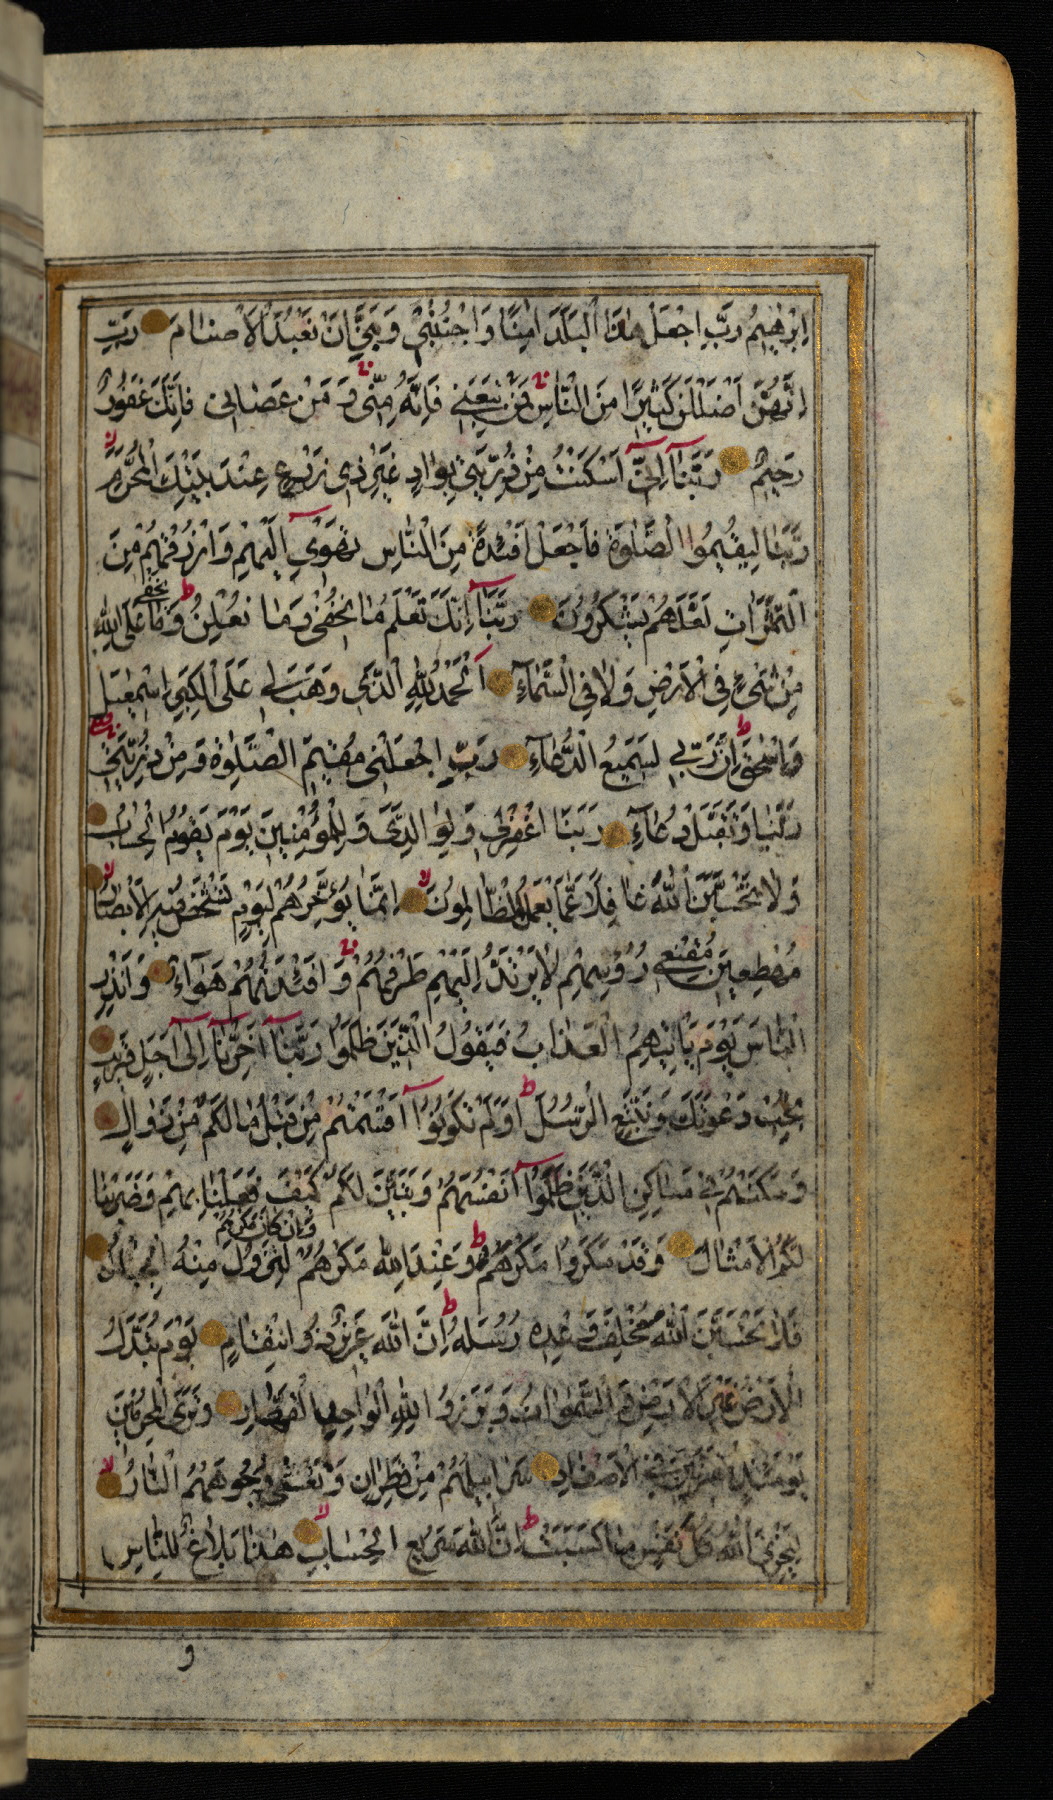 اِبْرٰهِيمُ رَبِّ اجْعَلْ هٰذَا الْبَلَدَ اٰمِنًا وَاجْنُبْنِي وَبَنِيَّ اَنْ نَعْبُدَ الْاَصْنَامَ رَبِّ
اِنَّهُنَّ اَضْلَلْنَ كَثِيرًا مِنَ النَّاسِ فَمَنْ تَبِعَنِي فَاِنَّهُ مِنِّي وَمَنْ عَصَانِي فَاِنَّكَ غَفُورٌ
رَحِيمٌ رَبَّنَا اِنِّي اَسْكَنْتُ مِنْ ذُرِّيَّتِي بِوَادٍ غَيْرِ ذِي زَرْعٍ عِنْدَ بَيْتِكَ الْمُحَرَّمِ
رَبَّنَا لِيُقِيمُوا الصَّلٰوةَ فَاجْعَلْ اَفْئِدَةً مِنَ النَّاسِ تَهْوِي اِلَيْهِمْ وَارْزُقْهُمْ مِنَ
الثَّمَرَاتِ لَعَلَّهُمْ يَشْكُرُونَ رَبَّنَا اِنَّكَ تَعْلَمُ مَا نُخْفِي وَمَا نُعْلِنُ وَمَا يَخْفٰى عَلَى اللّٰهِ
مِنْ شَيْءٍ فِي الْاَرْضِ وَلَا فِي السَّمَاءِ اَلْحَمْدُ لِلّٰهِ الَّذِي وَهَبَ لِي عَلَى الْكِبَرِ اِسْمٰعِيلَ
وَاِسْحٰقَ اِنَّ رَبِّي لَسَمِيعُ الدُّعَاءِ رَبِّ اجْعَلْنِي مُقِيمَ الصَّلٰوةِ وَمِنْ ذُرِّيَّتِي
رَبَّنَا وَتَقَبَّلْ دُعَاءِ رَبَّنَا اغْفِرْ لِي وَلِوَالِدَيَّ وَلِلْمُؤْمِنِينَ يَوْمَ يَقُومُ الْحِسَابُ
وَلَا تَحْسَبَنَّ اللّٰهَ غَافِلًا عَمَّا يَعْمَلُ الظَّالِمُونَ اِنَّمَا يُؤَخِّرُهُمْ لِيَوْمٍ تَشْخَصُ فِيهِ الْاَبْصَارُ
مُهْطِعِينَ مُقْنِعِي رُؤُسِهِمْ لَا يَرْتَدُّ اِلَيْهِمْ طَرْفُهُمْ وَاَفْئِدَتُهُمْ هَوَاءٌ وَاَنْذِرِ
النَّاسَ يَوْمَ يَأْتِيهِمُ الْعَذَابُ فَيَقُولُ الَّذِينَ ظَلَمُوا رَبَّنَا اَخِّرْنَا اِلٰى اَجَلٍ قَرِيبٍ
نُجِبْ دَعْوَتَكَ وَنَتَّبِعِ الرُّسُلَ اَوَلَمْ تَكُونُوا اَقْسَمْتُمْ مِنْ قَبْلُ مَا لَكُمْ مِنْ زَوَالٍ
وَسَكَنْتُمْ فِي مَسَاكِنِ الَّذِينَ ظَلَمُوا اَنْفُسَهُمْ وَتَبَيَّنَ لَكُمْ كَيْفَ فَعَلْنَا بِهِمْ وَضَرَبْنَا
لَكُمُ الْاَمْثَالَ وَقَدْ مَكَرُوا مَكْرَهُمْ وَعِنْدَ اللّٰهِ مَكْرُهُمْ وَاِنْ كَانَ مَكْرُهُمْ لِتَزُولَ مِنْهُ الْجِبَالُ
فَلَا تَحْسَبَنَّ اللّٰهَ مُخْلِفَ وَعْدِهِ رُسُلَهُ اِنَّ اللّٰهَ عَزِيزٌ ذُو انْتِقَامٍ يَوْمَ تُبَدَّلُ
الْاَرْضُ غَيْرَ الْاَرْضِ وَالسَّمٰوَاتُ وَبَرَزُوا لِلّٰهِ الْوَاحِدِ الْقَهَّارِ وَتَرَى الْمُجْرِمِينَ
يَوْمَئِذٍ مُقَرَّنِينَ فِي الْاَصْفَادِ سَرَابِيلُهُمْ مِنْ قَطِرَانٍ وَتَغْشٰى وُجُوهَهُمُ النَّارُ
لِيَجْزِيَ اللّٰهُ كُلَّ نَفْسٍ مَا كَسَبَتْ اِنَّ اللّٰهَ سَرِيعُ الْحِسَابِ هٰذَا بَلَاغٌ لِلنَّاسِ
و